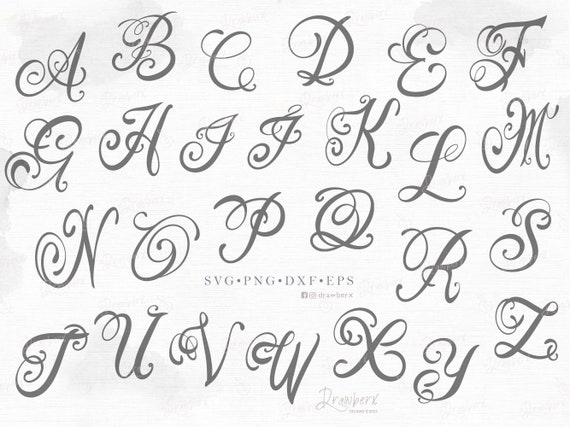 A B C D E F
G H I J K L M
N O P Q R S
SVG•PNG•DXF•EPS
drawberx
T U V W X Y Z
Drawberx